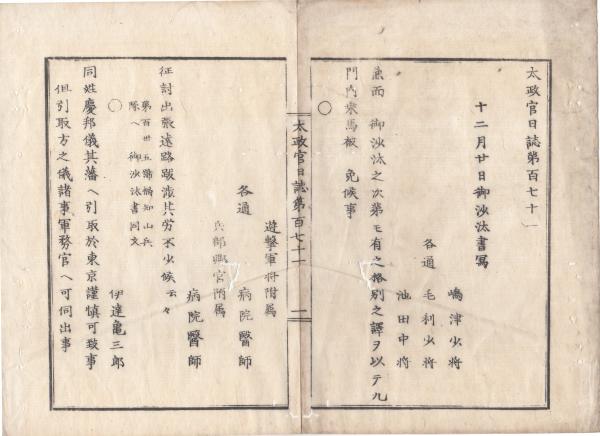 太政官日誌第百七十一
十二月廿日御沙汰書寫
嶋津少將
各通 毛利少將
池田中將
兼而 御沙汰之次第モ有之格別之譯ヲ以テ九
門内乘馬被 免候事
○
太政官日誌第百七十一 一
遊撃軍將附属
各通 病院醫師
兵部卿宮附属
病院醫師
征討出張遠路跋渉其労不少候云々
第百卅五号福知山兵
隊へ 御沙汰書同文
○ 伊達亀三郎
同姓慶邦儀其藩ヘ引取於東京謹慎可致事
但引取方之儀諸事軍務官ヘ可伺出事